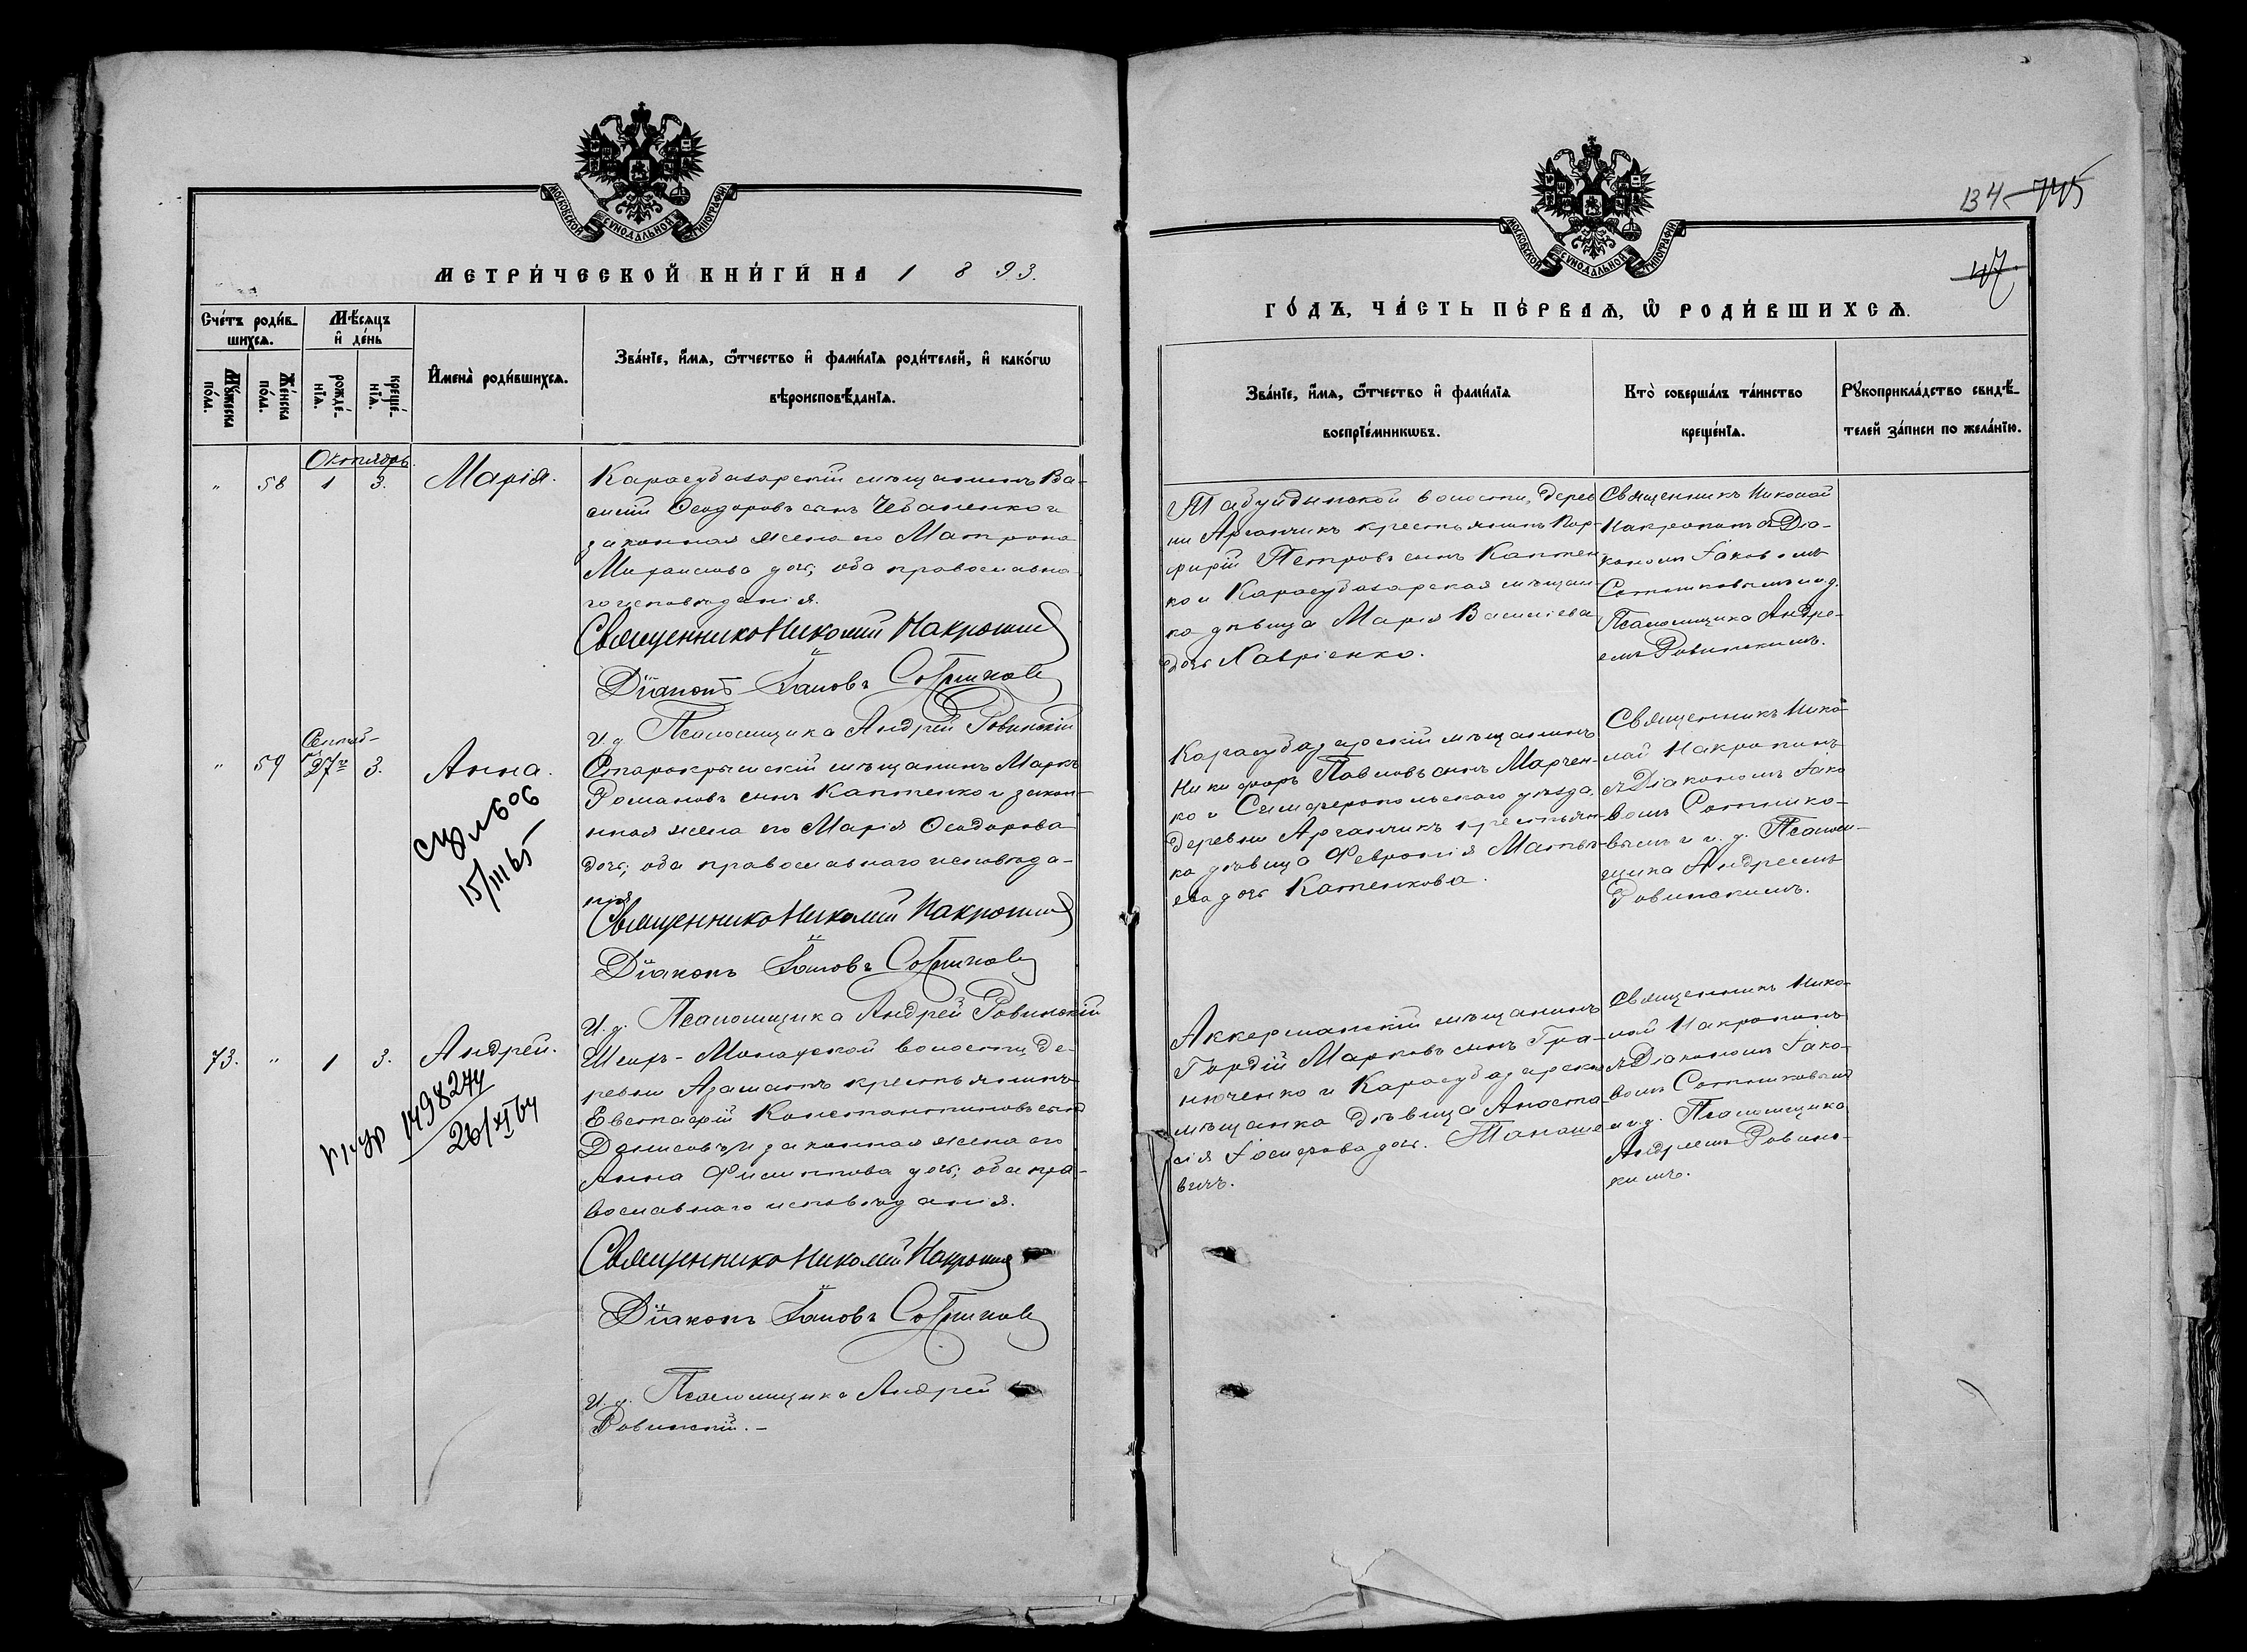 МОСКОВСКОЙ СѴНОДАЛЬНОЙ ТИПОГРАФІИ
МЕТРИ́ЧЕСКОЙ КНИ́ГИ НА 1893.
Сче́тъ роди́в-
шихсѧ.
Мѣ́сѧцъ
и҆ де́нь
Мꙋ́жеска
по́ла.
Же́нска
по́ла.
рожде́-
нїѧ.
креще́-
нїѧ.
И҆мена̀ роди́вшихсѧ.
Зва́нїе, и҆́мѧ, ѻ҆́тчество и҆ фами́лїѧ роди́телей, и҆ како́гѡ
вѣроисповѣ́данїѧ.
Октябрь.
" 58 1 3. Марія.
Карасубазарскій мѣщанинъ Ва-
силій Ѳеодоровъ сынъ Чебаненко и
законная жена его Матрона
Михаилова дочь, оба православна-
го исповѣданія.
Священникъ Николай Накропинъ
Діаконъ Іаковъ Сотниковъ
И. д. Псаломщика Андрей Ровинскій
Сентяб-
ря
" 59 27го 3. Анна.
606
15/III 65
Старокрымскій мѣщанинъ Маркъ
Романовъ сынъ Каптенко и закон-
ная жена его Марія Ѳеодорова
дочь, оба православнаго исповѣда-
нія.
Священникъ Николай Накропинъ
Діаконъ Іаковъ Сотниковъ
И. д. Псаломщика Андрей Ровинскій
73. " 1 3. Андрей.
1498274
26/XI 64
Шейхъ-Монахской волости, де-
ревни Азаматъ крестьянинъ
Евстафій Константиновъ сынъ
Денисовъ и законная жена его
Анна Филиппова дочь, оба пра-
вославнаго исповѣданія.
Священникъ Николай Накропинъ
Діаконъ Іаковъ Сотниковъ
И. д. Псаломщика Андрей
Ровинскій.-
134 775
47.
МОСКОВСКОЙ СѴНОДАЛЬНОЙ ТИПОГРАФІИ
ГО́ДЪ, ЧА́СТЬ ПЕ́РВАѦ, Ѡ҆ РОДИ́ВШИХСѦ.
Зва́нїе, и҆́мѧ, ѻ҆́тчество и҆ фами́лїѧ
воспрїе́мникѡвъ.
Кто̀ соверша́лъ та́инство
креще́нїѧ.
Рꙋкоприкла́дство свидѣ́-
телей за́писи по жела́нїю.
Табулдынской волости, дерев
ни Арганчикъ крестьянинъ Пор-
фирій Петровъ сынъ Каптен-
ко и Карасубазарская мѣщан-
ка дѣвица Марія Василіева
дочь Лавріенко.
Священникъ Николай
Накропинъ съ Діа-
кономъ Іаковомъ
Сотниковымъ и и. д.
Псаломщика Андре-
емъ Ровинскимъ.
Карасубазарскій мѣщанинъ
Никифоръ Павловъ сынъ Марчен-
ко и Симферопольскаго уѣзда,
деревни Арганчикъ крестьян-
ка дѣвица Февронія Матѳ-
ева дочь Каптенкова.
Священникъ Нико-
лай Накропинъ
съ Діакономъ Іако
вомъ Сотнико-
вымъ и и. д. Псалом-
щика Андреемъ
Ровинскимъ.
Аккерманскій мѣщанинъ
Гордій Марковъ сынъ Гра-
нюченко и Карасубазарская
мѣщанка дѣвица Анаста-
сія Іосифова дочь Танаше-
вичъ.
Священникъ Нико-
лай Накропинъ
съ Діакономъ Іако-
вомъ Сотниковымъ
и и. д. Псаломщика
Андреемъ Ровинс-
кимъ.